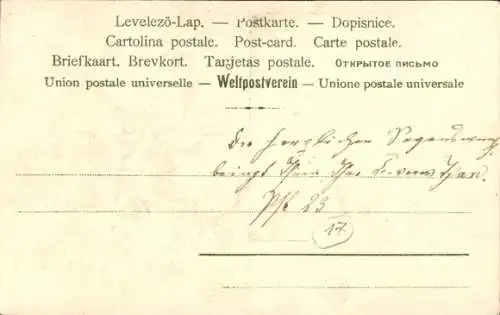 Levelező-Lap. — Postkarte. — Dopisnice.
Cartolina postale. Post-card. Carte postale.
Briefkaart. Brevkort. Tarjetas postale. ОТКРЫТОЕ ПИСЬМО
Union postale universelle — Weltpostverein — Unione postale universale
herzlichen
bringt
23
17